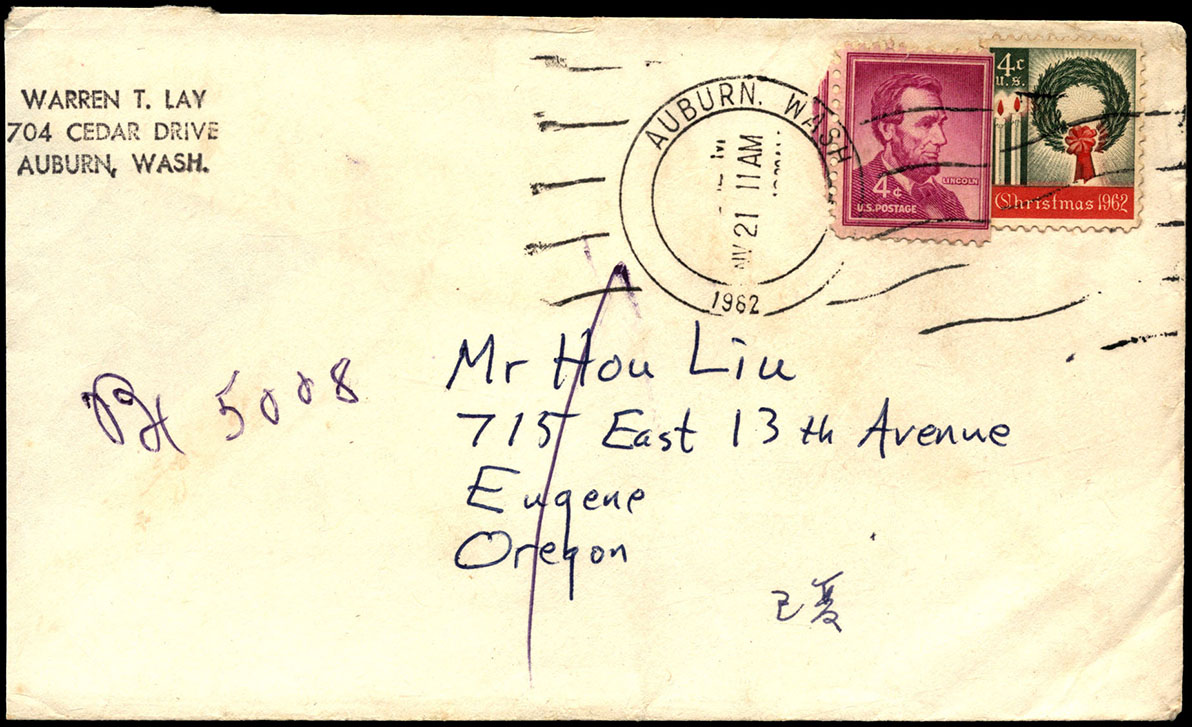 WARREN T. LAY
704 CEDAR DRIVE
AUBURN, WASH.
AUBURN, WASH
21 11 AM
1962
4¢
LINCOLN
U.S. POSTAGE
4¢
U.S.
Christmas 1962
5008
Mr Hou Liu
715 East 13th Avenue
Eugene
Oregon